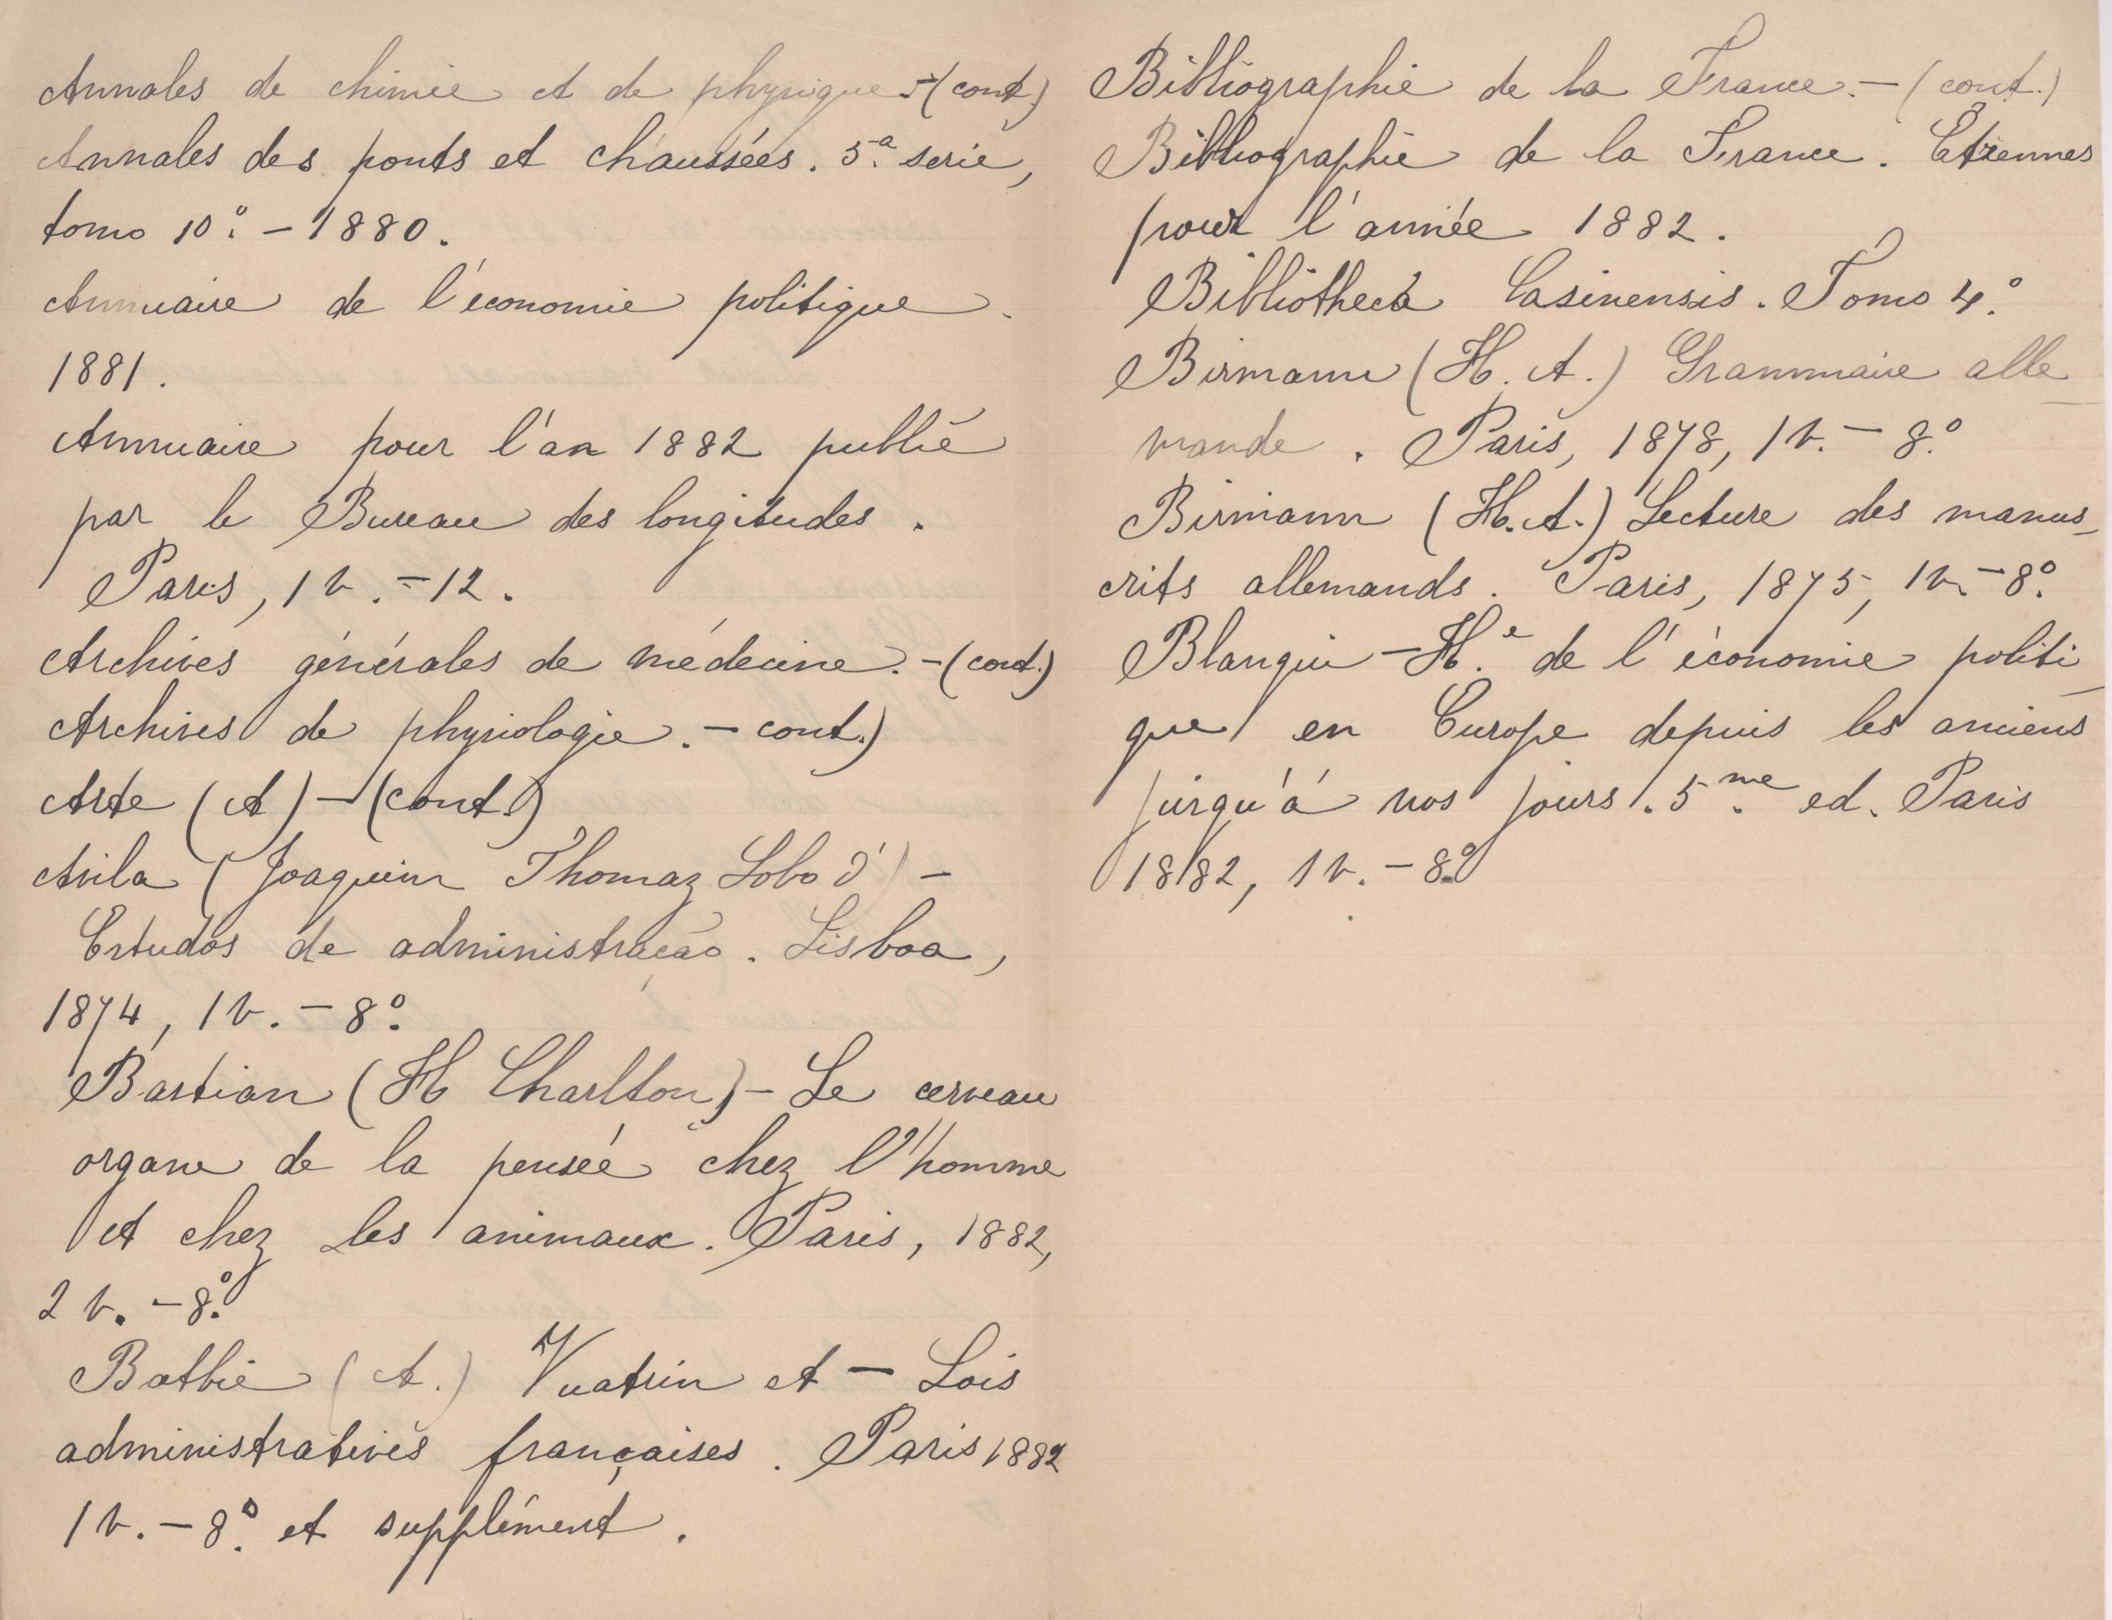 Annales de chimie et de physique.-(cont.)
Annales des ponts et chaussées. 5.ª serie,
tomo 10.º - 1880.
Annuaire de l'économie politique.
1881.
Annuaire pour l'an 1882 publié
par le Bureau des longitudes.
Paris, 1 v. - 12.
Archives générales de médecine. - (cont.)
Archives de physiologie. - cont.)
Arte (A) - (cont.)
Avila (Joaquim Thomaz Lobo d') -
Estudos de administração. Lisboa,
1874, 1 v. - 8.º
Bastian (H Charlton) - Le cerveau
organe de la pensée chez l'homme
et chez les animaux. Paris, 1882,
2 v. - 8.º
Batbie (A.) Vuatrin et - Lois
administratives françaises. Paris 1882
1 v. - 8.º et supplément.
Bibliographie de la France. - (cont.)
Bibliographie de la France. Étrennes
pour l'année 1882.
Bibliotheca Casinensis. Tomo 4.º
Birmann (H. A.) Grammaire alle
mande. Paris, 1878, 1 v. - 8.º
Birmann (H. A.) Lecture des manus-
crits allemands. Paris, 1875, 1 v. - 8.º
Blanqui - H.e de l'économie politi-
que en Europe depuis les anciens
jusqu'á nos jours. 5.me ed. Paris
1882, 1 v. - 8.º